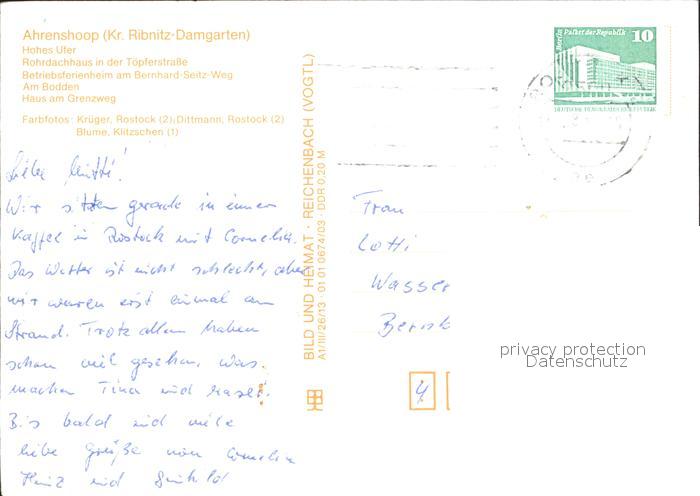 Ahrenshoop (Kr. Ribnitz-Damgarten)
Hohes Ufer
Rohrdachhaus in der Töpferstraße
Betriebsferienheim am Bernhard-Seitz-Weg
Am Bodden
Haus am Grenzweg
Farbfotos: Krüger, Rostock (2), Dittmann, Rostock (2)
Blume, Klitzschen (1)
Liebe Mutti!
Wir sitzen gerade in einem
Kaffee in Rostock mit Cornelia.
Das Wetter ist nicht schlecht, aber
wir waren erst einmal am
Strand. Trotz allem haben
schon viel gesehen. Was
machen Tina und
Bis bald und viele
liebe Grüße von Cornelia
Heinz und
BILD UND HEIMAT · REICHENBACH (VOGTL)
A1/III/26/13 01 01 0674/03 · DDR 0,20 M
Berlin Palast der Republik 10
DEUTSCHE DEMOKRATISCHE REPUBLIK
Frau
Lotti
Wasser
4
privacy protection
Datenschutz